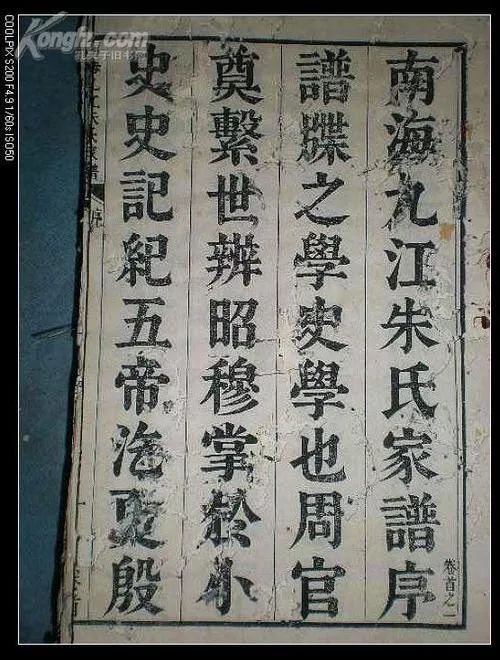 南海九江朱氏家譜序
卷首之一
譜牒之學史學也周官
奠繫世辨昭穆掌於小
史史記紀五帝迄夏殷
Kongfz.com
COOLPIX S200 F4.9 1/60s ISO50